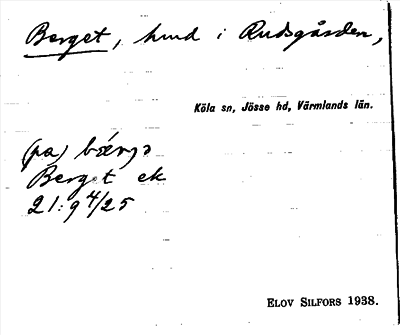 Berget, hmd i Rudsgården,
Köla sn, Jösse hd, Värmlands län.
(pa) bærjə
Berget ek
21:9 4/25
ELOV SILFORS 1938.